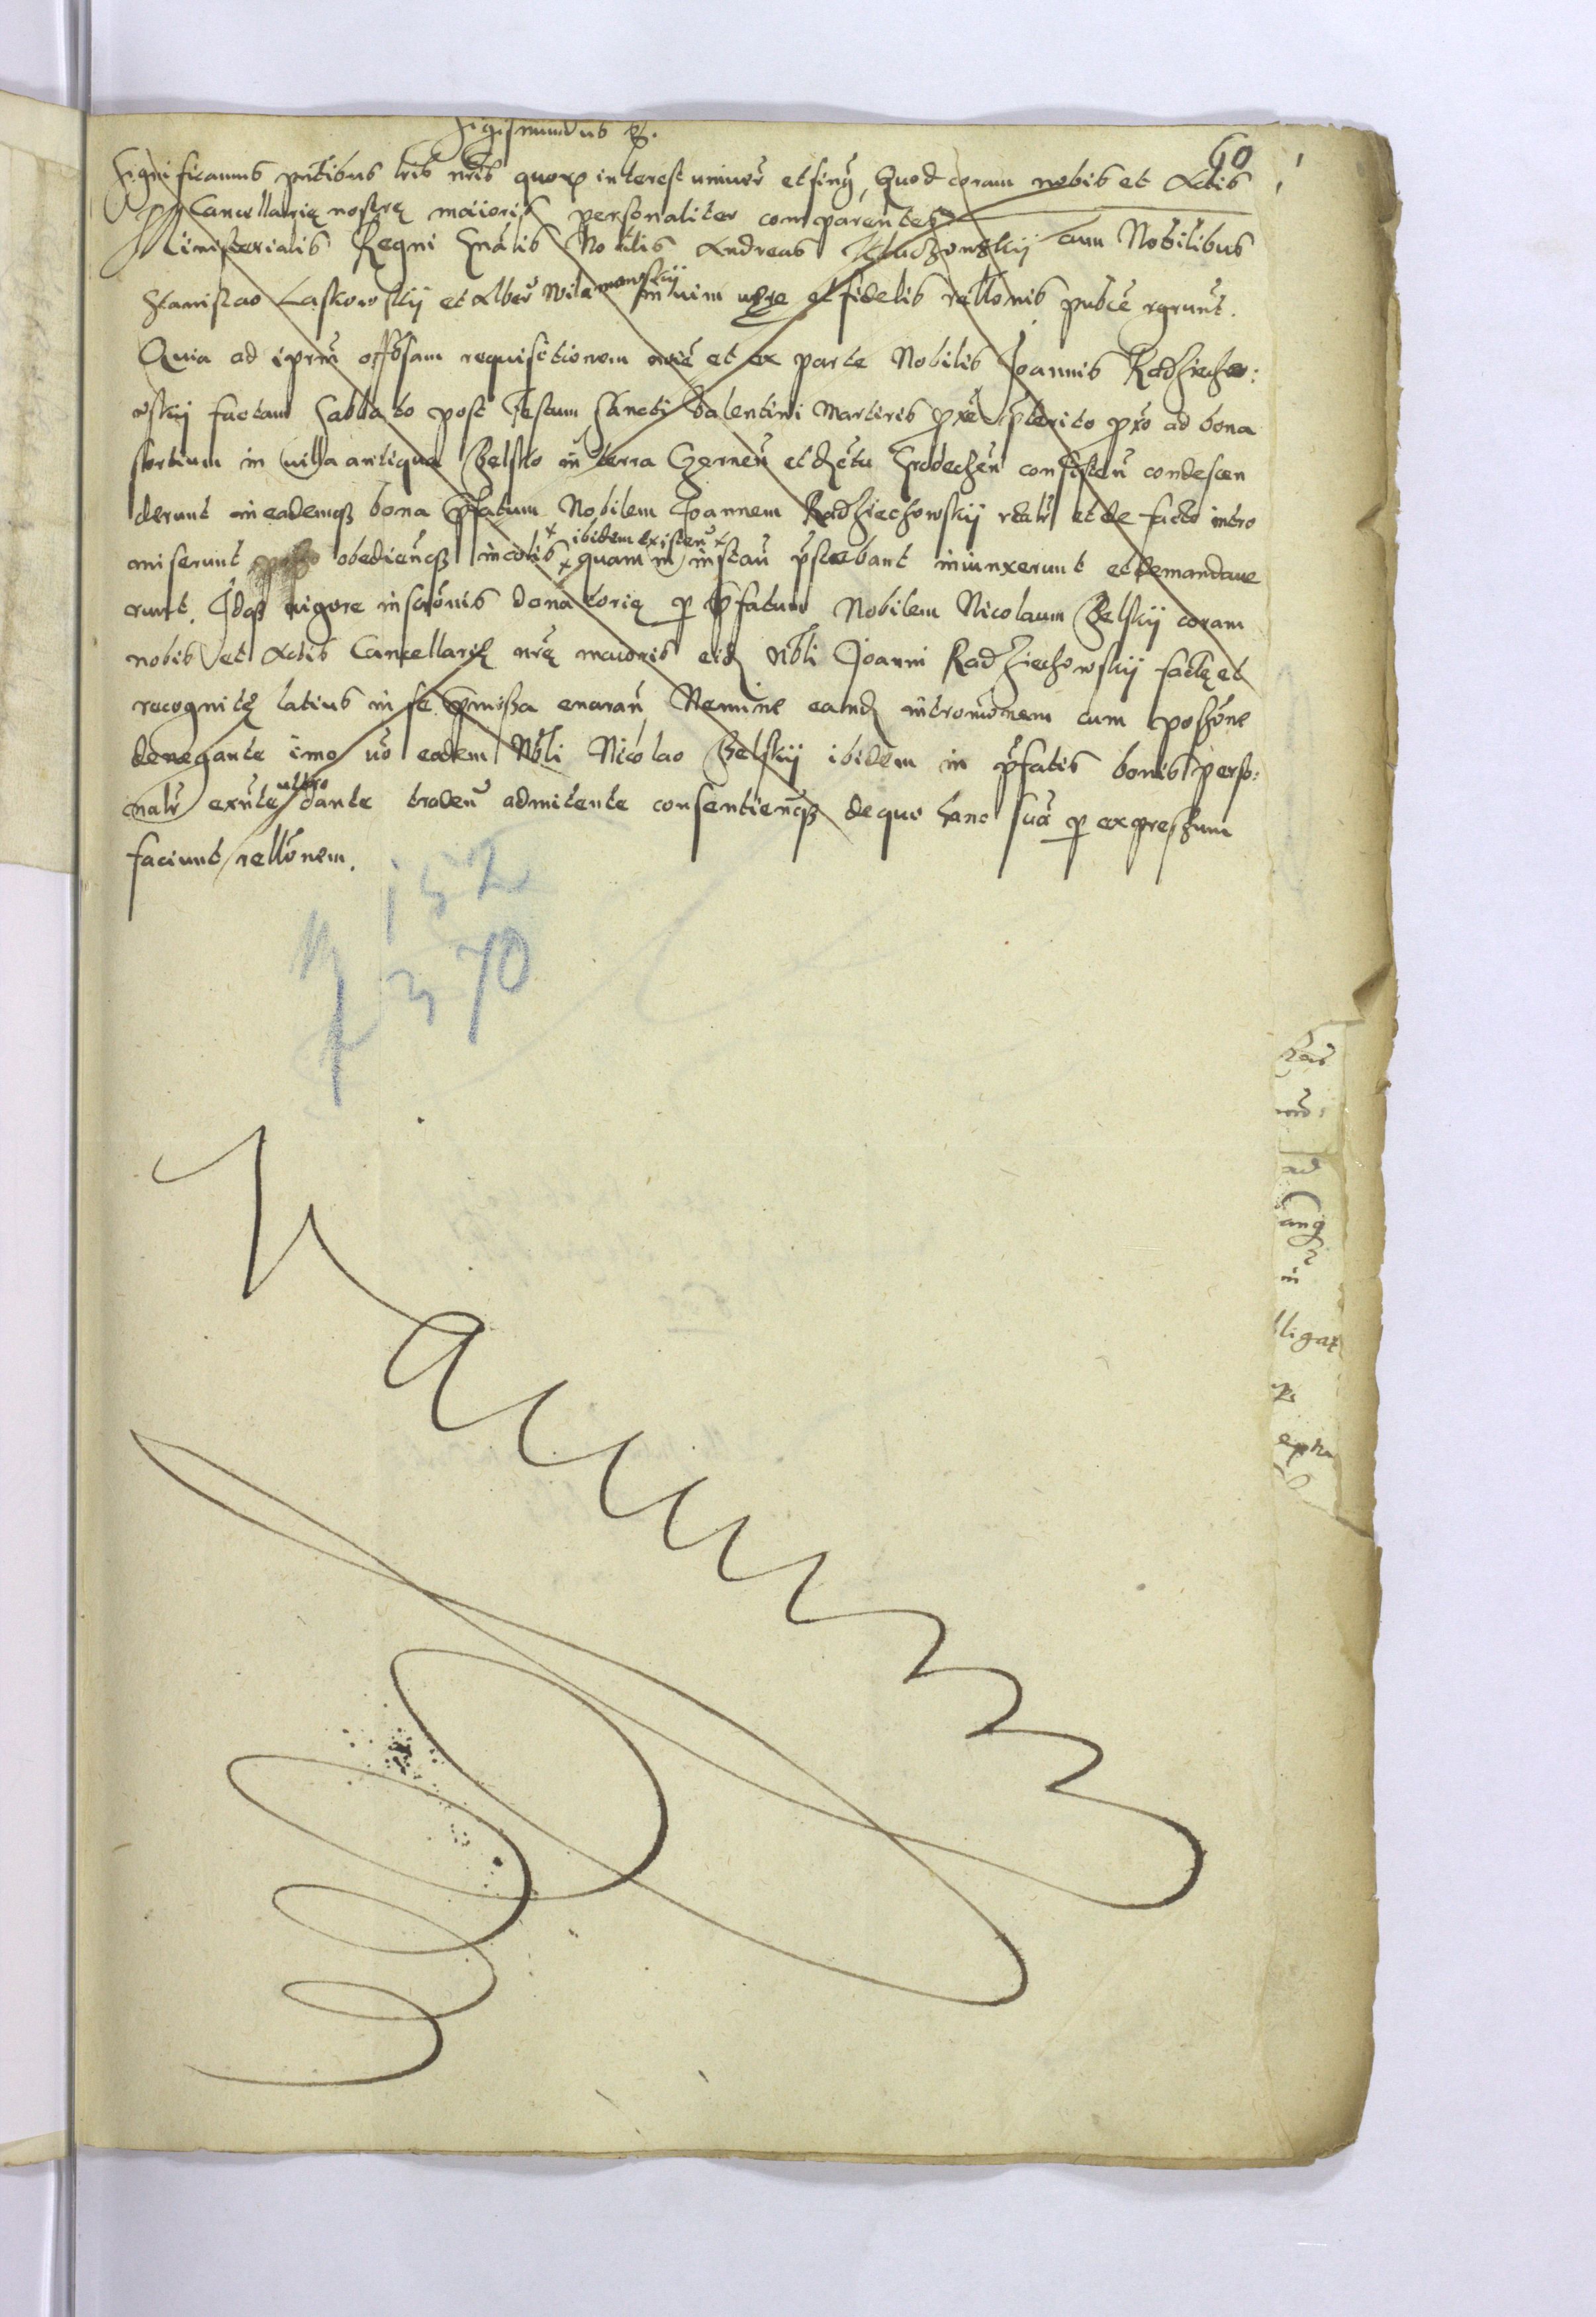 Sigismundus &.
60
Significamus pntibus lris nris quorum interest univer et singu, Quod coram nobis et Actis
Cancellarię nostrę maiioris personaliter comparentes
Ministerialis Regni gnalis Nobilis Andreas cum Nobilibus
Stanislao Laskowskij et Alber Wilamowskij in vim verę et fidelis rellonis publce rgrunt.
Quia ad iprm offosam requisitionem et ex parte Nobilis Joannis Radziecho:
wskij factam Sabbato post Festum Sancti Valentini Martiris pxe pterito pxo ad bona
sortium in villa antiqua Belsko in terra Czernen et districtu Grodecen consisten condescen
derunt in eademqz bona pfatum Nobilem Joannem Radziechowskij realr et de facto intro
miserunt obedienqz incolis ibidem existen quam in instan pstabant iniunxerunt et demandave
runt. Idqz vigore inscrionis donatorię p pfatum Nobilem Nicolaum Belskij coram
nobis et Actis Cancellarię nrę maioris eidz Nbli Joanni Radziechowskij factę et
recognitę latius in se pmissa enaran Nemine eandz intromonem cum possone
denegante imo vo eodem Nbli Nicolao Belskij ibidem in pfatis bonis perso:
nalr exnte ultro dante traden admitente consentienqz de quo hanc sua p expressum
faciunt rellonem.
152
370
Vacuum
ad
in
ligat